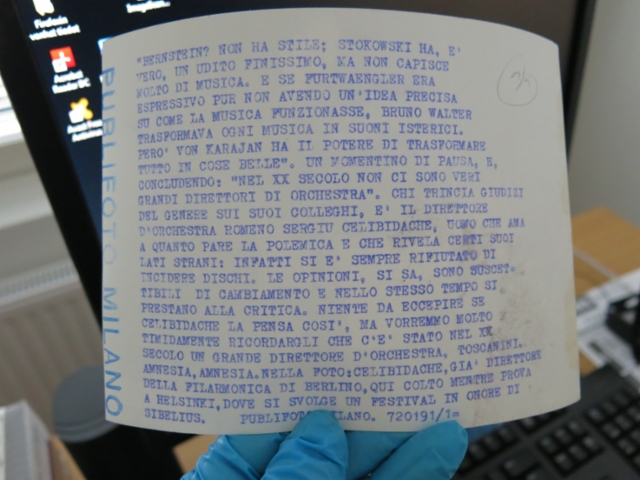 "BERNSTEIN? NON HA STILE; STOKOWSKI HA, E'
VERO, UN UDITO FINISSIMO, MA NON CAPISCE
MOLTO DI MUSICA. E SE FURTWAENGLER ERA
ESPRESSIVO PUR NON AVENDO UN'IDEA PRECISA
SU COME LA MUSICA FUNZIONASSE, BRUNO WALTER
TRASFORMAVA OGNI MUSICA IN SUONI ISTERICI.
PERO' VON KARAJAN HA IL POTERE DI TRASFORMARE
TUTTO IN COSE BELLE". UN MOMENTINO DI PAUSA, E,
CONCLUDENDO: "NEL XX SECOLO NON CI SONO VERI
GRANDI DIRETTORI DI ORCHESTRA". CHI TRINCIA GIUDIZI
DEL GENERE SUI SUOI COLLEGHI, E' IL DIRETTORE
D'ORCHESTRA ROMENO SERGIU CELIBIDACHE, UOMO CHE AMA
A QUANTO PARE LA POLEMICA E CHE RIVELA CERTI SUOI
LATI STRANI: INFATTI SI E' SEMPRE RIFIUTATO DI
INCIDERE DISCHI. LE OPINIONI, SI SA, SONO SUSCET-
TIBILI DI CAMBIAMENTO E NELLO STESSO TEMPO SI
PRESTANO ALLA CRITICA. NIENTE DA ECCEPIRE SE
CELIBIDACHE LA PENSA COSI', MA VORREMMO MOLTO
TIMIDAMENTE RICORDARGLI CHE C'E' STATO NEL XX
SECOLO UN GRANDE DIRETTORE D'ORCHESTRA, TOSCANINI.
AMNESIA, AMNESIA. NELLA FOTO: CELIBIDACHE, GIA' DIRETTORE
DELLA FILARMONICA DI BERLINO, QUI COLTO MENTRE PROVA
A HELSINKI, DOVE SI SVOLGE UN FESTIVAL IN ONORE DI
SIBELIUS. PUBLIFOTO MILANO. 720191/1m
PUBLIFOTO MILANO
Acrobat
Reader DC